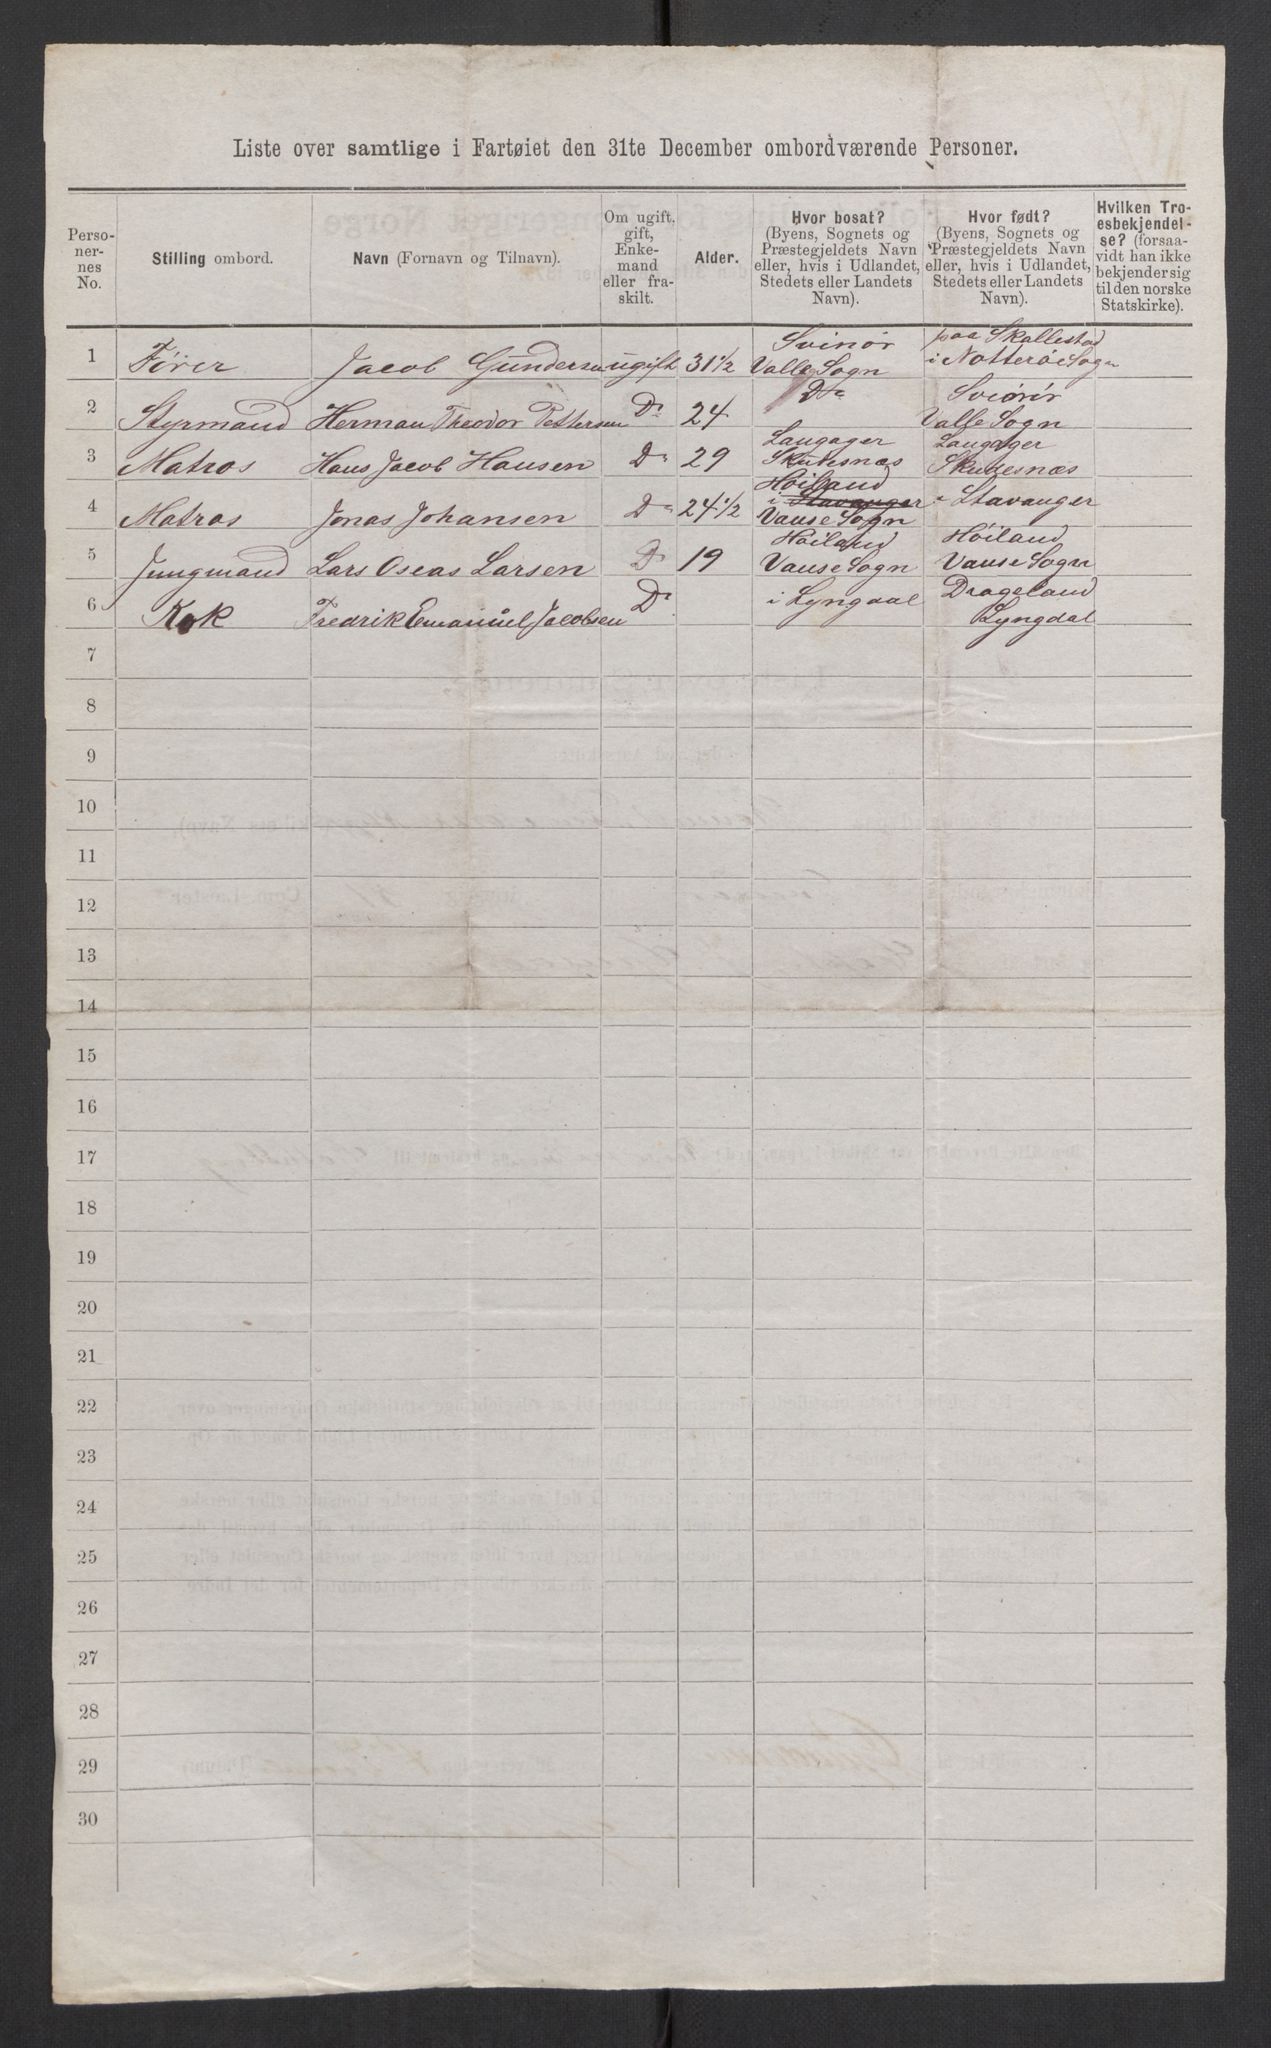 Liste over samtlige i Fartøiet den 31te December ombordværende Personer.
Perso-
ner-
nes
No.
Stilling ombord.
Navn (Fornavn og Tilnavn).
Om ugift,
gift,
Enke-
mand
eller fra-
skilt.
Alder.
Hvor bosat?
(Byens, Sognets og
Præstegjeldets Navn
eller, hvis i Udlandet,
Stedets eller Landets
Navn).
Hvor født?
(Byens, Sognets og
Præstegjeldets Navn
eller, hvis i Udlandet,
Stedets eller Landets
Navn).
Hvilken Tro-
esbekjendel-
se? (forsaa-
vidt han ikke
bekjender sig
til den norske
Statskirke).
1 Fører Jacob Gundersen ugift 31 1/2
Svinør
Valle Sogn
paa Skallestad
i Nøtterøe Sogn
2 Styrmand Herman Theodor Pettersen Do 24
Do
Svinør
Valle Sogn
3 Matros Hans Jacob Hansen Do 29
Langager
Skudesnæs
Langager
Skudesnæs
4 Matros Jonas Johansen Do 24 1/2
Høiland
i Stavanger
Vanse Sogn
i Stavanger
5 Jungmand Lars Oseas Larsen Do 19
Høiland
Vanse Sogn
Høiland
Vanse Sogn
6 Kok Fredrik Emanuel Jacobsen Do
i Lyngdal
Drageland
Lyngdal
7
8
9
10
11
12
13
14
15
16
17
18
19
20
21
22
23
24
25
26
27
28
29
30